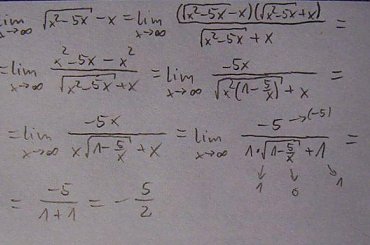 lim x→∞ √(x²-5x) - x = lim x→∞ ((√(x²-5x) - x)(√(x²-5x) + x)) / (√(x²-5x) + x) =
= lim x→∞ (x² - 5x - x²) / (√(x²-5x) + x) = lim x→∞ (-5x) / (√(x²(1 - 5/x)) + x) =
= lim x→∞ (-5x) / (x √(1 - 5/x) + x) = lim x→∞ (-5 → (-5)) / (1·√(1 - 5/x) + 1) =
↓ ↓ ↘
1 0 1
= (-5) / (1+1) = - 5/2